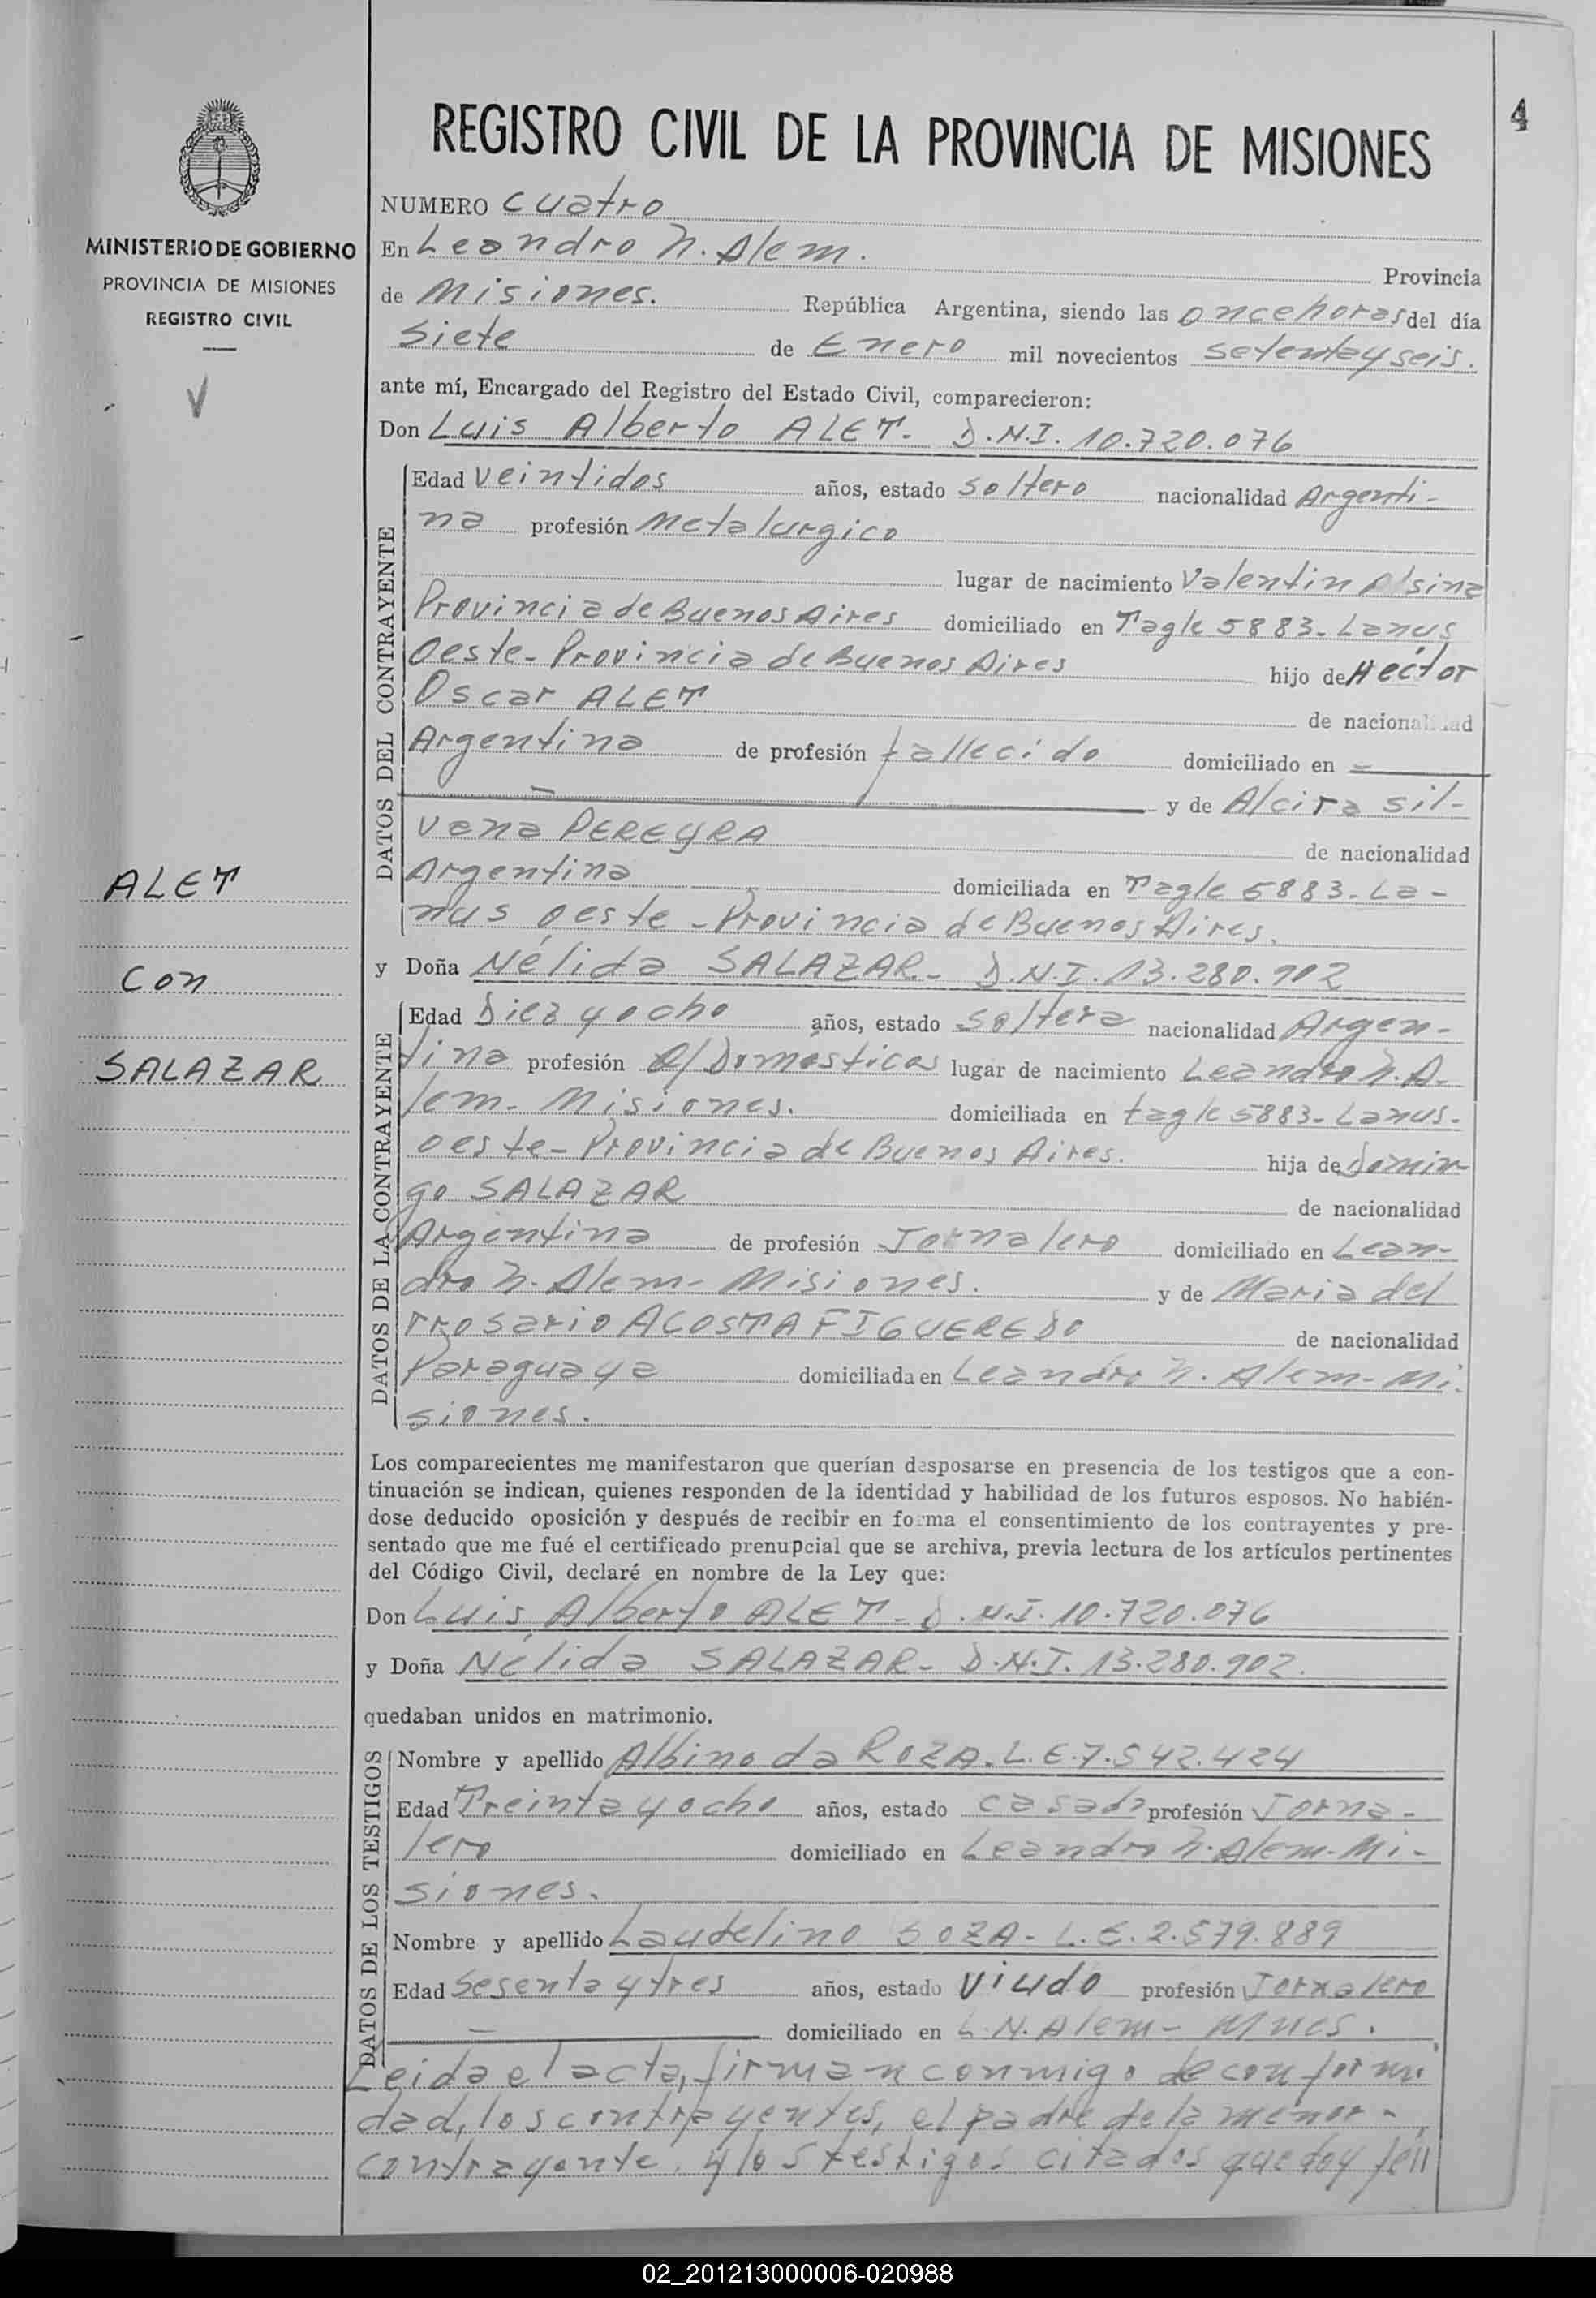 4
REGISTRO CIVIL DE LA PROVINCIA DE MISIONES
MINISTERIO DE GOBIERNO
PROVINCIA DE MISIONES
REGISTRO CIVIL
ALET
con
SALAZAR
NUMERO cuatro
En Leandro N. Alem. Provincia
de Misiones. República Argentina, siendo las once horas del día
siete de Enero mil novecientos setenta y seis.
ante mí, Encargado del Registro del Estado Civil, comparecieron:
Don Luis Alberto ALET- D.N.I. 10.720.076
DATOS DEL CONTRAYENTE
Edad veintidos años, estado soltero nacionalidad Argenti-
na profesión Metalurgico
lugar de nacimiento Valentin Alsina
Provincia de Buenos Aires domiciliado en Tagle 5883- Lanus
Oeste- Provincia de Buenos Aires hijo de Hector
Oscar ALET de nacionalidad
Argentina de profesión fallecido domiciliado en —
— y de Alcira Sil-
vana PEREYRA de nacionalidad
Argentina domiciliada en Tagle 5883- La-
nus oeste - Provincia de Buenos Aires.
y Doña Nélida SALAZAR- D.N.I. 13.280.902
DATOS DE LA CONTRAYENTE
Edad Diez y ocho años, estado soltera nacionalidad Argen-
tina profesión Q/Domésticos lugar de nacimiento Leandro N. A-
lem- Misiones. domiciliada en tagle 5883- Lanus-
oeste- Provincia de Buenos Aires. hija de Domin-
go SALAZAR de nacionalidad
Argentina de profesión Jornalero domiciliado en Lean-
dro N. Alem- Misiones. y de Maria del
Rrosario ACOSTA FIGUEREDO de nacionalidad
Paraguaya domiciliada en Leandro N. Alem- Mi-
siones.
Los comparecientes me manifestaron que querían desposarse en presencia de los testigos que a con-
tinuación se indican, quienes responden de la identidad y habilidad de los futuros esposos. No habién-
dose deducido oposición y después de recibir en forma el consentimiento de los contrayentes y pre-
sentado que me fué el certificado prenupcial que se archiva, previa lectura de los artículos pertinentes
del Código Civil, declaré en nombre de la Ley que:
Don Luis Alberto ALET- D.N.I. 10.720.076
y Doña Nélida SALAZAR- D.N.I. 13.280.902.
quedaban unidos en matrimonio.
DATOS DE LOS TESTIGOS
Nombre y apellido Albino da ROZA- L.E. 7.542.424
Edad Treinta y ocho años, estado casado profesión Jorna-
lero domiciliado en Leandro N. Alem- Mi-
siones.
Nombre y apellido Laudelino SOZA- L.E. 2.579.889
Edad Sesenta y tres años, estado viudo profesión Jornalero
— domiciliado en L.N. Alem- Mnes.
Leida el acta, firman conmigo de conformi
dad, los contrayentes, el padre de la menor-
contrayente y los testigos citados que doy fé//
02_201213000006-020988